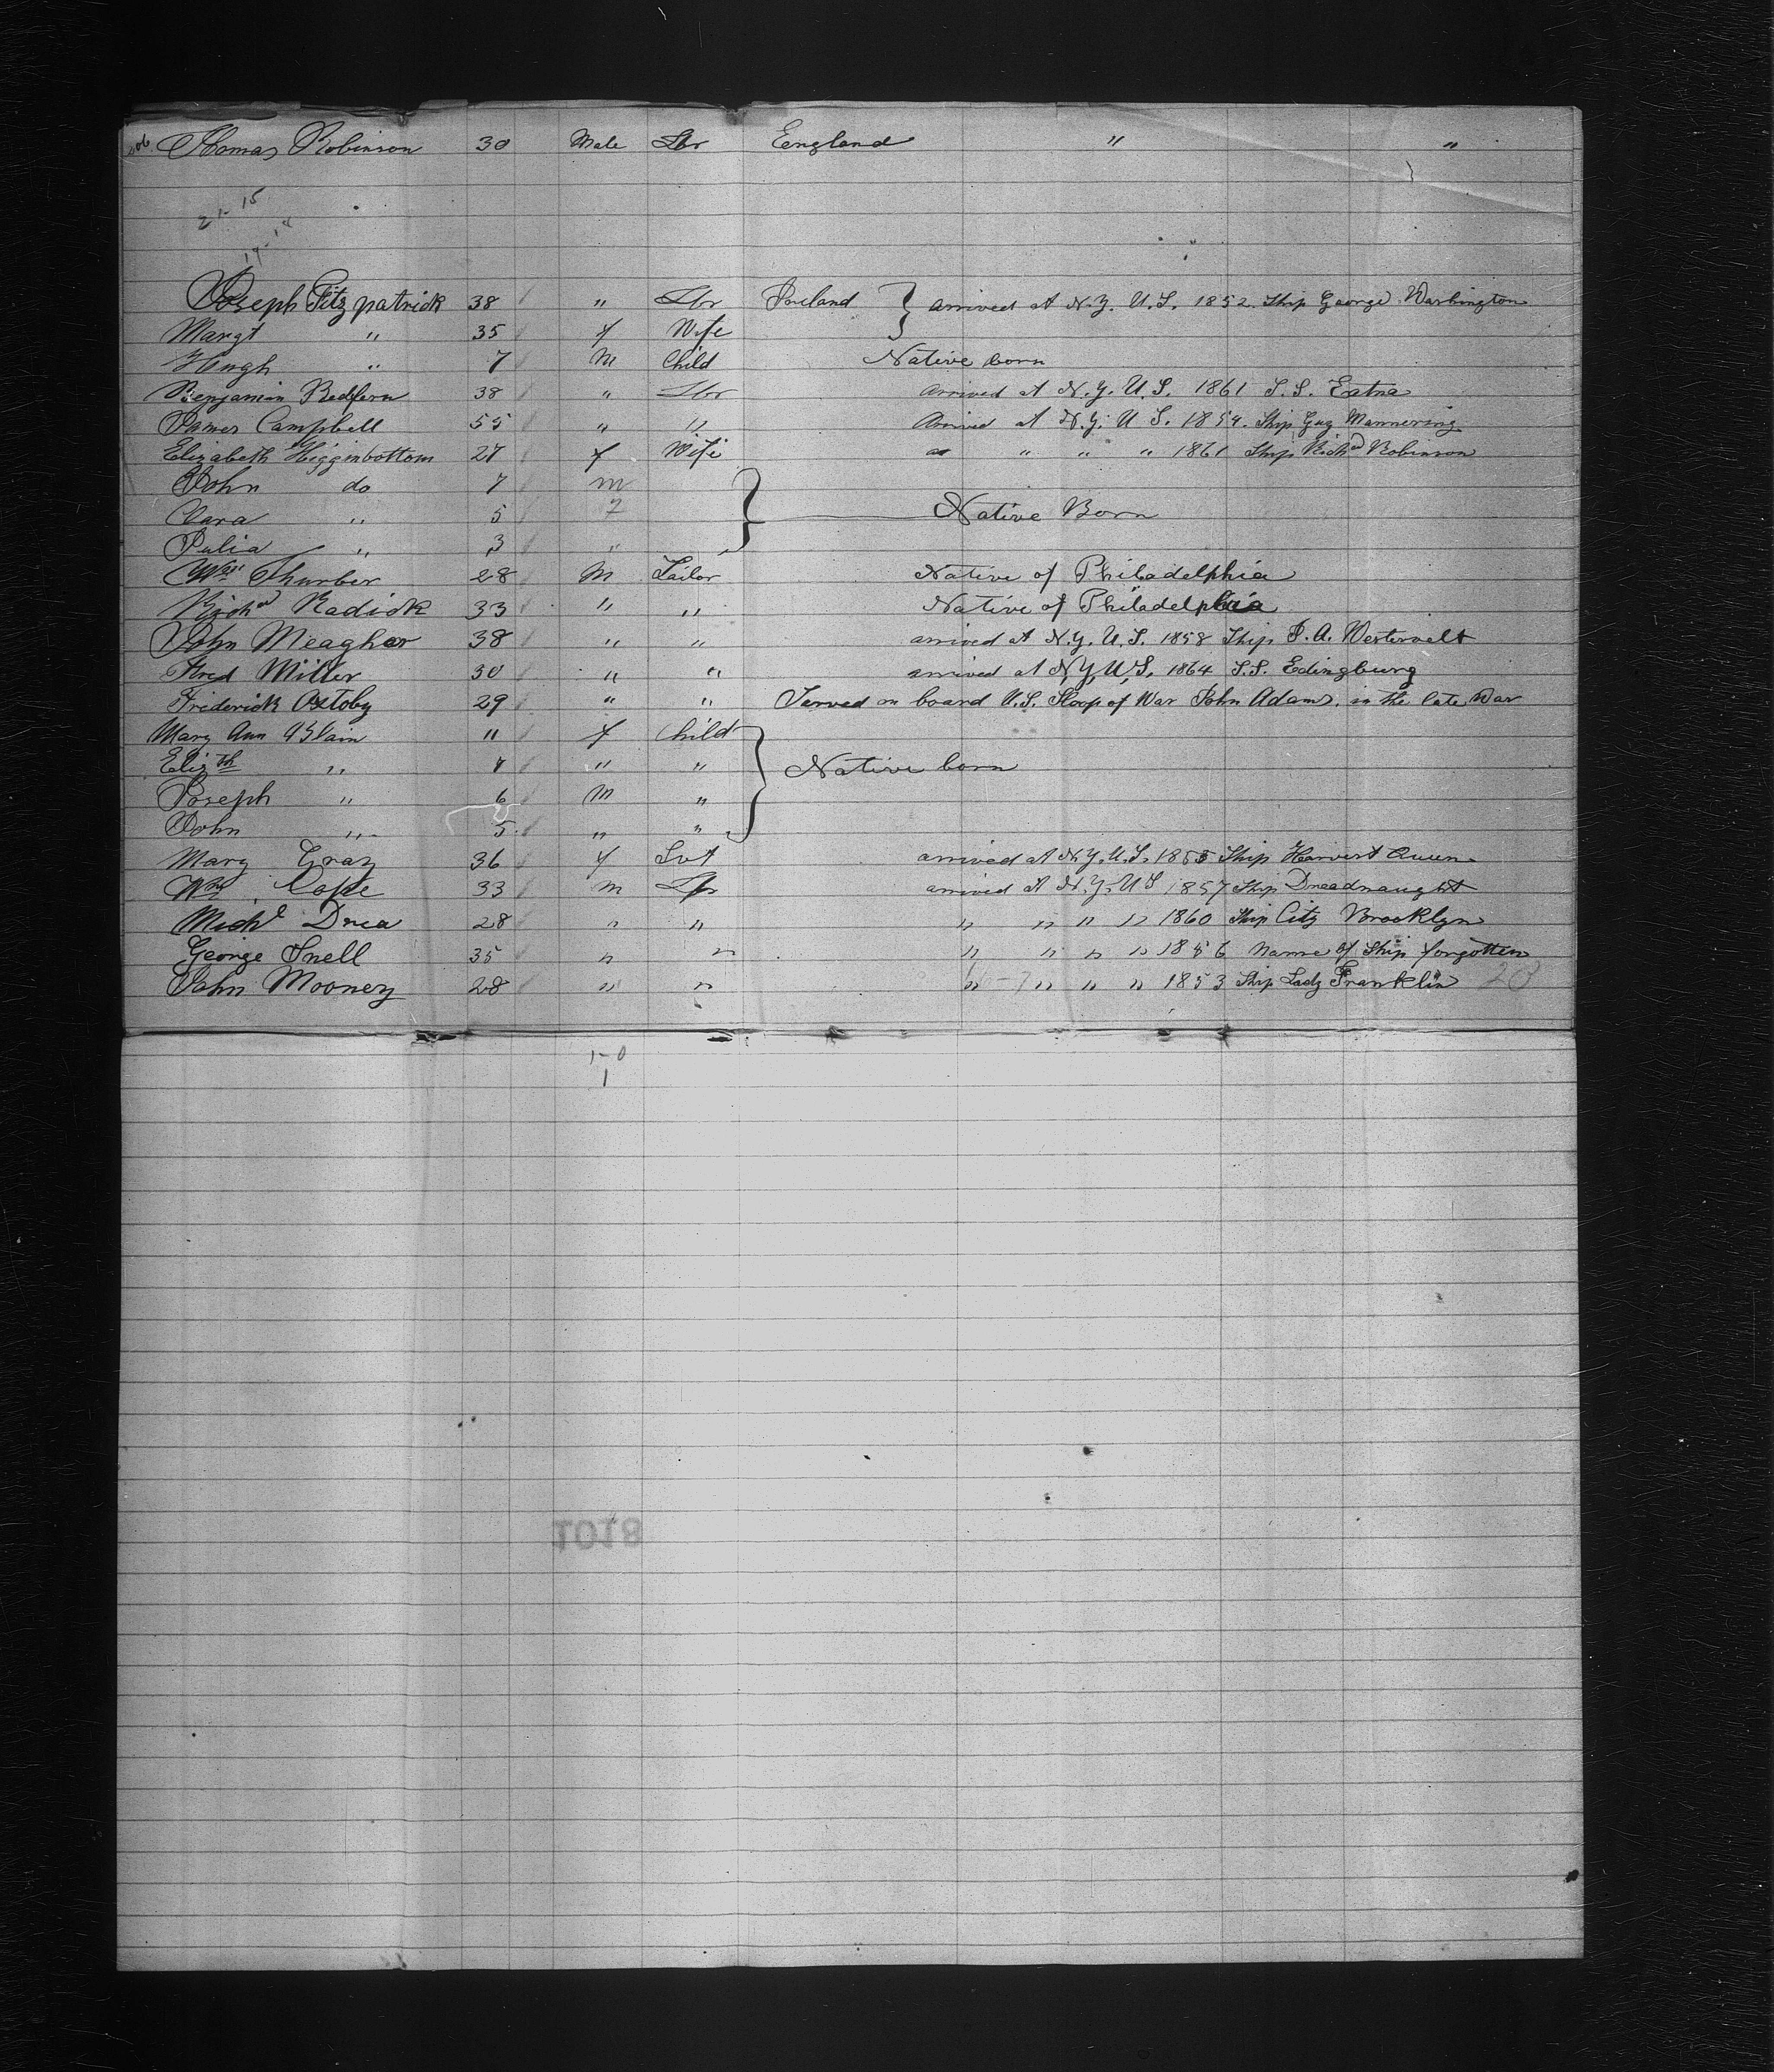 Thomas Robinson 30 Male Lbr England " "
21-15
19-14
Joseph Fitzpatrick 38 " Lbr Ireland } arrived at N.Y. U.S. 1852. Ship George Washington
Margt " 35 f Wife
Hugh " 7 M Child Native born
Benjamin Redfern 38 " Lbr arrived at N.Y. U.S. 1861 S.S. Eatna
James Campbell 55 " " Arrived at N.Y. U S. 1854. Ship Guy Mannering
Elizabeth Higginbottom 27 f Wife " " " 1861 Ship Richd Robinson
John do 7 m
" 5 f } Native Born
Julia " 3 "
Wm Thurber 28 M Tailor Native of Philadelphia
Richd Radick 33 " " Native of Philadelphia
John Meagher 38 " " arrived at N.Y. U.S. 1858 Ship J. A. Westervelt
Fred Miller 30 " " arrived at N.Y. U.S. 1864 S.S. Edingburg
Friderick Oxtoby 29 " " Served on board U.S. Sloop of War John Adams. in the late War
Mary Ann 11 f Child
Elizth " 7 " " } Native born
Joseph " 6 M "
John " 5 " "
Mary Gray 36 f Svt arrived at N.Y. U.S. 1855 Ship Harvest Queen
Wm 33 m Lbr arrived at N.Y. U S 1857 Ship Dreadnaught
Michl Drea 28 " " " " " " 1860 Ship City Brooklyn
George Snell 35 " " " " " " 1856 Name of Ship forgotten
John Mooney 28 " " " " " " 1853 Ship Lady Franklin 20
1-0
1
1018